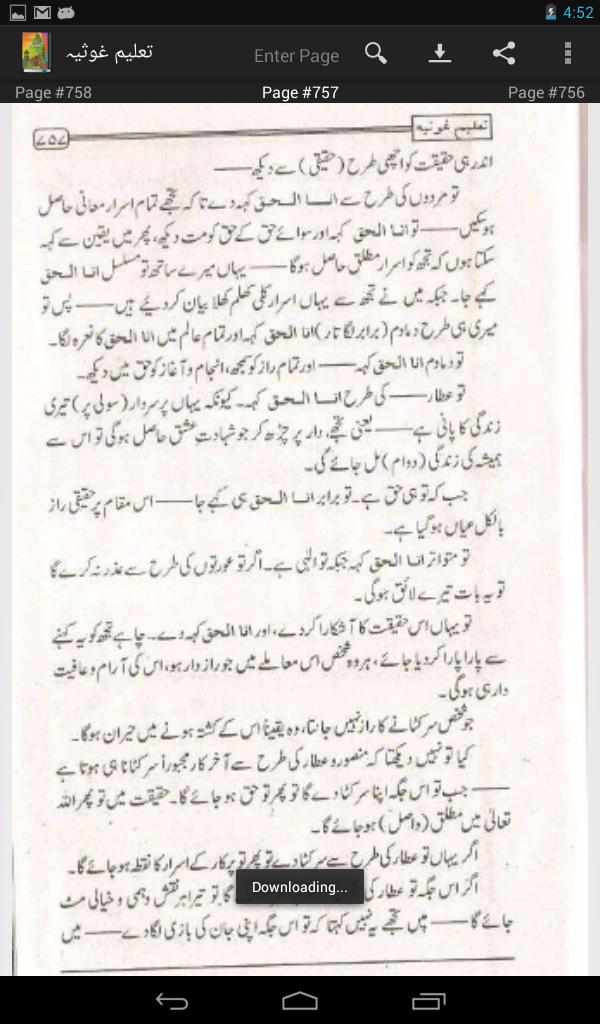 4:52
تعلیم غوثیہ
Enter Page
Page #758 Page #757 Page #756
تعلیم غوثیہ ۷۵۷
اندر ہی حقیقت کو اچھی طرح (حقیقی) سے دیکھ——
تو مردوں کی طرح سے انا الحق کہہ دے تا کہ تجھے تمام اسرار معانی حاصل
ہوسکیں——تو انا الحق کہہ اور سوائے حق کے حق کو مت دیکھ، پھر میں یقین سے کہہ
سکتا ہوں کہ تجھ کو اسرار مطلق حاصل ہوگا——یہاں میرے ساتھ تو مسلسل انا الحق
کہے جا۔ جبکہ میں نے تجھ سے یہاں اسرار کلی کھلم کھلا بیان کر دیئے ہیں——پس تو
میری ہی طرح دمادم (برابر لگا تار) انا الحق کہہ اور تمام عالم میں انا الحق کا نعرہ لگا۔
تو دمادم انا الحق کہہ——اور تمام راز کو سمجھ، انجام و آغاز کو حق میں دیکھ۔
تو عطار——کی طرح انا الحق کہہ۔ کیونکہ یہاں پر سردار (سولی پر) تیری
زندگی کا پانی ہے——یعنی تجھے، دار پر چڑھ کر جو شہادت عشق حاصل ہوگی تو اس سے
ہمیشہ کی زندگی (دوام) مل جائے گی۔
جب کہ تو ہی حق ہے۔ تو برابر انا الحق ہی کہے جا——اس مقام پر حقیقی راز
بالکل عیاں ہوگیا ہے۔
تو متواتر انا الحق کہہ جبکہ تو الٰہی ہے۔ اگر تو عورتوں کی طرح سے عذر نہ کرے گا
تو یہ بات تیرے لائق ہوگی۔
تو یہاں اس حقیقت کا آشکارا کر دے، اور انا الحق کہہ دے۔ چاہے تجھ کو یہ کہنے
سے پارا پارا کر دیا جائے، ہر وہ شخص اس معاملے میں جو راز دار ہو، اس کی آرام و عافیت
دار ہی ہوگی۔
جو شخص سر کٹانے کا راز نہیں جانتا، وہ یقیناً اس کے کشتہ ہونے میں حیران ہوگا۔
کیا تو نہیں دیکھتا کہ منصور و عطار کی طرح سے آخر کار مجبوراً سر کٹانا ہی ہوتا ہے
——جب تو اس جگہ اپنا سر کٹا دے گا تو پھر تو حق ہو جائے گا۔ حقیقت میں تو پھر اللہ
تعالیٰ میں مطلق (واصل) ہو جائے گا۔
اگر یہاں تو عطار کی طرح سے سر کٹا دے تو پھر تو پرکار کے اسرار کا نقطہ ہو جائے گا۔
اگر اس جگہ تو عطار کی گا۔ تو تیرا ہر نقش وہمی و خیالی مٹ
Downloading...
جائے گا——میں تجھے یہ نہیں کہتا کہ تو اس جگہ اپنی جان کی بازی لگا دے——میں